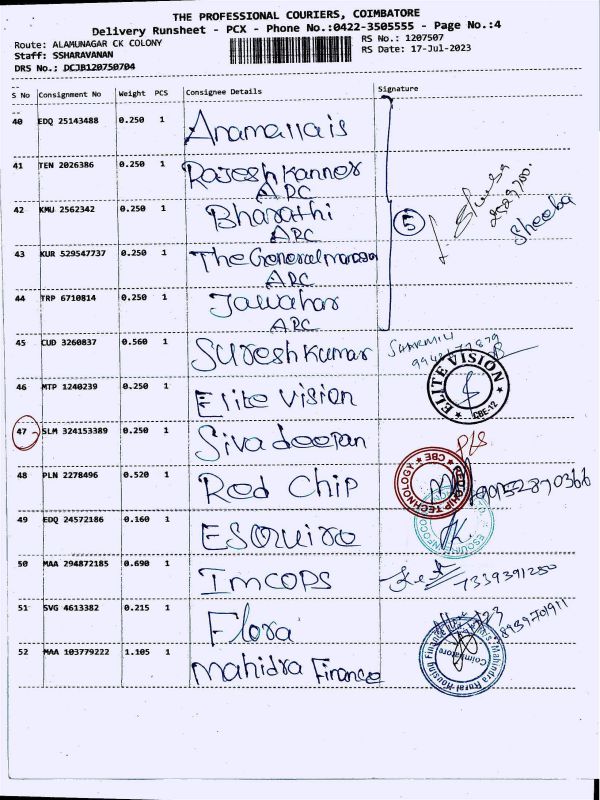 THE PROFESSIONAL COURIERS, COIMBATORE
Delivery Runsheet - PCX - Phone No.:0422-3505555 - Page No.:4
Route: ALAMUNAGAR CK COLONY
RS No.: 1207507
Staff: SSHARAVANAN
RS Date: 17-Jul-2023
DRS No.: DCJB120750704
S No Consignment No Weight PCS Consignee Details Signature
40 EDQ 25143488 0.250 1 Anamallais
41 TEN 2026386 0.250 1 Rajesh Kanner
APC
42 KMU 2562342 0.250 1 Bharathi
APC
5
Sheeba
43 KUR 529547737 0.250 1 The General manager
APC
44 TRP 6710814 0.250 1 Jawahar
APC
45 CUD 3260837 0.560 1 Sureshkumar
46 MTP 1240239 0.250 1 Elite Vision
ELITE VISION
CBE-12
47 SLM 324153389 0.250 1 Sivadeepan
48 PLN 2278496 0.520 1 Red Chip
REDCHIP TECHNOLOGY
CBE
49 EDQ 24572186 0.160 1 Esquiro
50 MAA 294872185 0.690 1 Imcops
7339391250
51 SVG 4613382 0.215 1 Flora
8939701911
52 MAA 103779222 1.105 1 Mahidra Finance
Mahindra Rural Housing Finance
Coimbatore